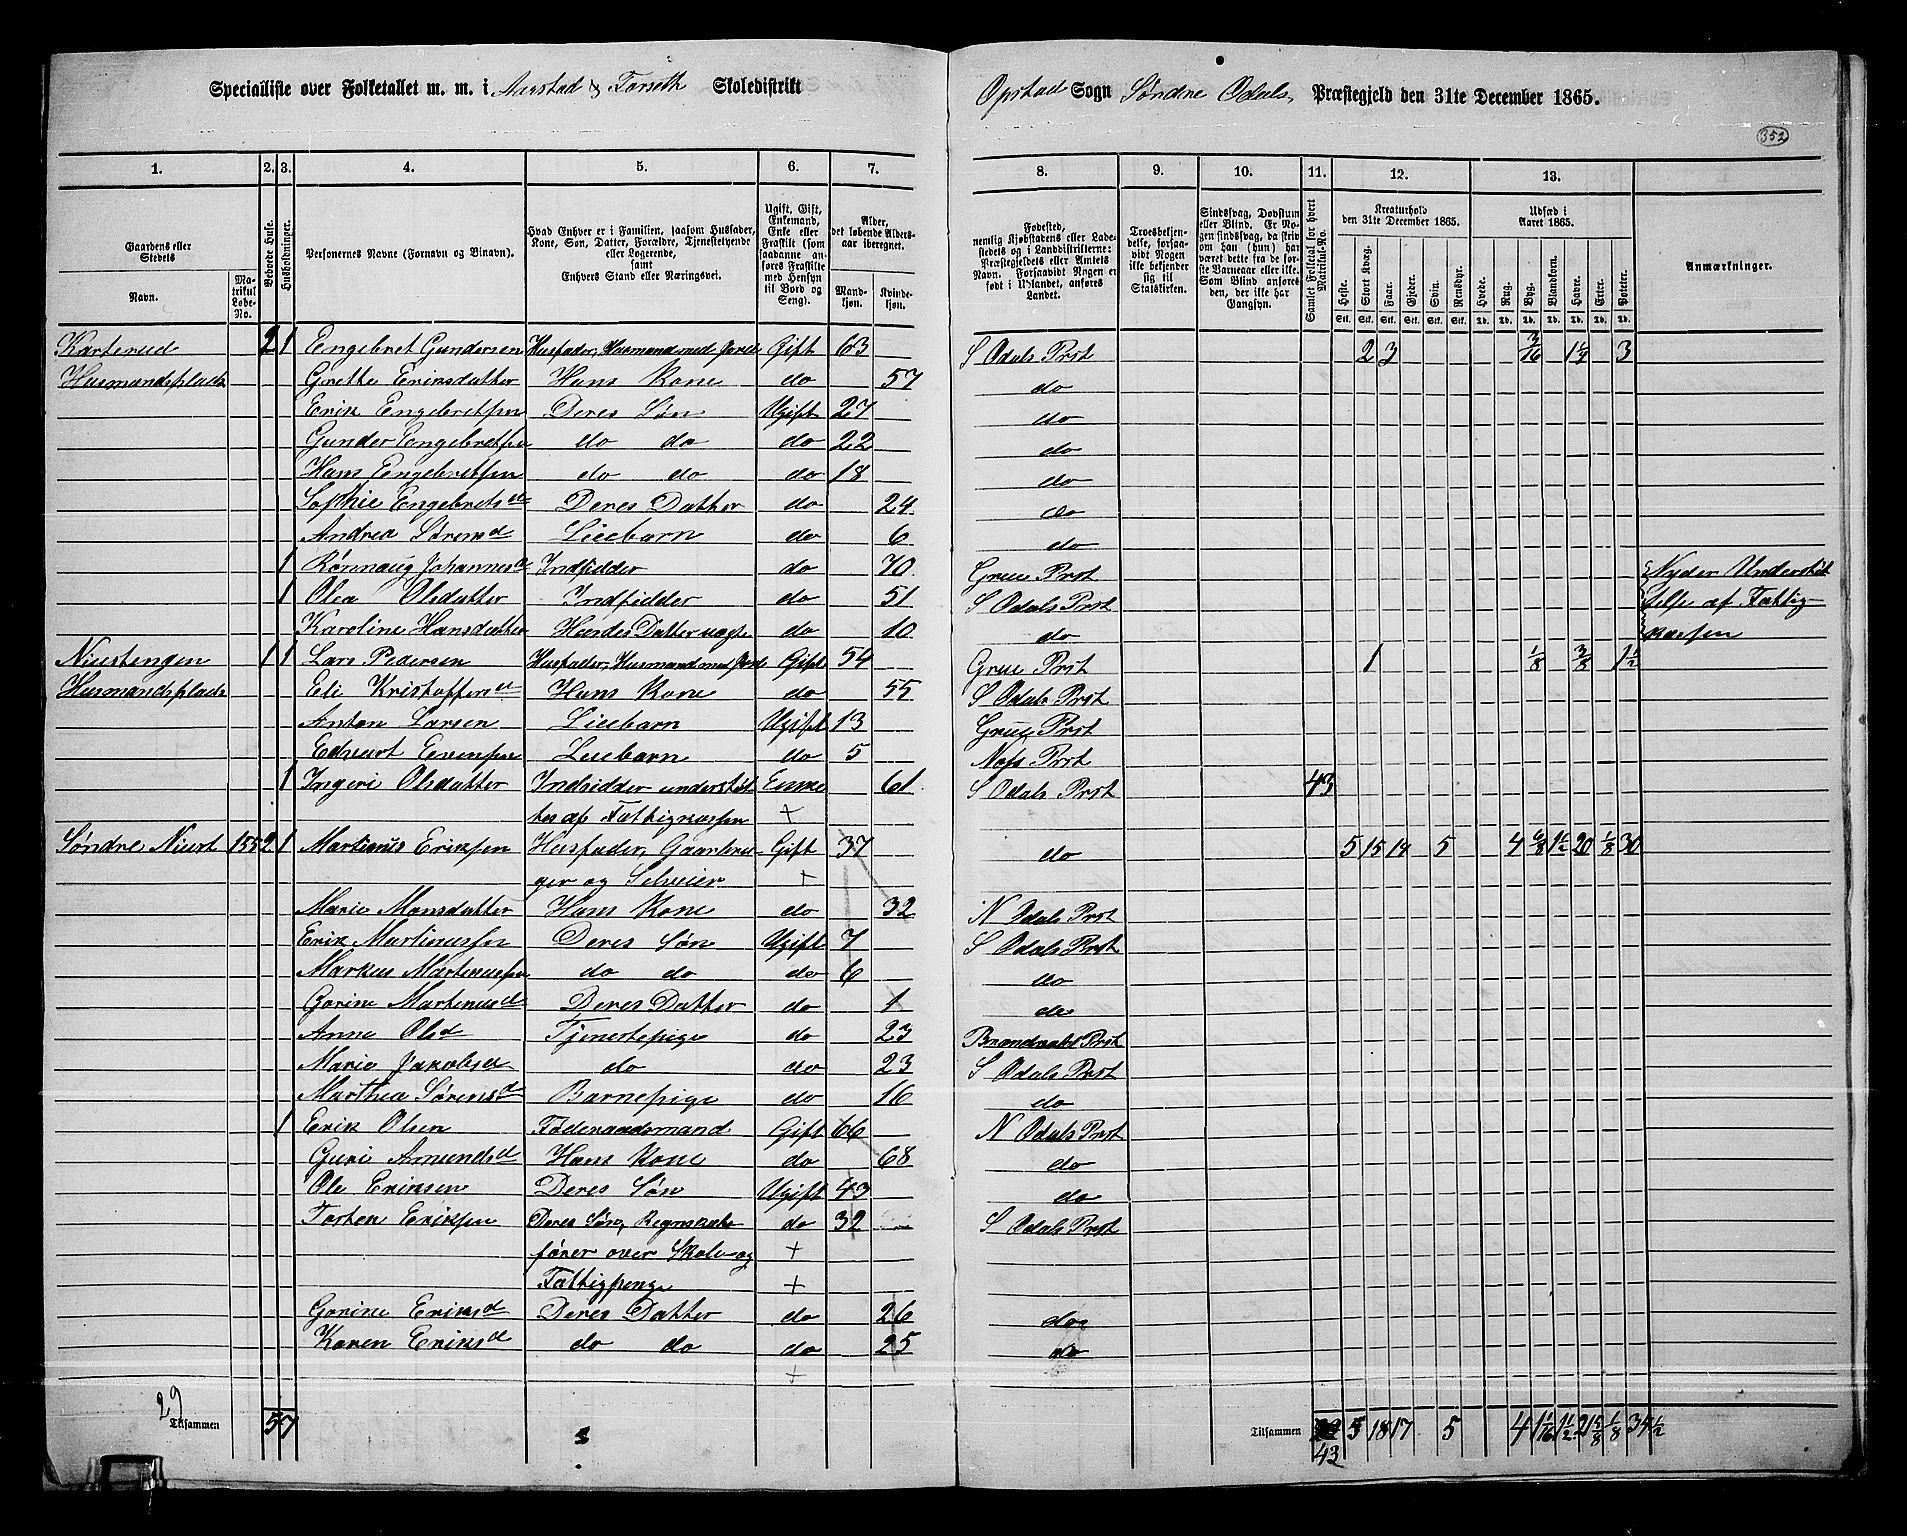 Specialliste over Folketallet m. m. i Aarstad & Forseth Skoledistrikt Opstad Sogn Søndre Odals Præstegjeld den 31te December 1865.
352
1. 2. 3. 4. 5. 6. 7. 8. 9. 10. 11. 12. 13.
Gaardens eller Stedets Navn. Matrikul Løbe-No. Beboede Huse. Husholdninger. Personernes Navne (Fornavn og Binavn). Hvad Enhver er i Familien, saasom Husfader, Kone, Søn, Datter, Forældre, Tjenestetyende eller Logerende, samt Enhvers Stand eller Næringsvei. Ugift, Gift, Enkemand, Enke eller Fraskilt (som saadanne anføres Fraskilte med Hensyn til Bord og Seng). Alder, det løbende Aldersaar iberegnet. Mandkjøn. Kvindekjøn.
Fødested, nemlig Kjøbstadens eller Ladestedets eller i Landdistrikterne: Præstegjeldets eller Amtets Navn. Forsaavidt Nogen er født i Udlandet, anføres Landet. Troesbekjendelse, forsaavidt Nogen ikke bekjender sig til Statskirken. Sindssvag, Døvstum eller Blind. Er Nogen sindssvag, da skriv om han (hun) har været dette fra de første Barneaar eller ikke. Som Blind anføres den, der ikke har Gangsyn. Samlet Folketal for hvert Matrikul-No. Kreaturhold den 31te December 1865. Udsæd i Aaret 1865. Anmærkninger.
Heste. Stort Kvæg. Faar. Gjeder. Svin. Rensdyr. Hvede. Rug. Byg. Blandkorn. Havre. Erter. Poteter.
Karterud 2 1 Engebret Gundersen Husfader, Husmand med Jord Gift 63 S Odals Prst 2 3 3/16 1 1/4 3
Husmandsplads Grethe Eriksdatter Hans Kone do 57 do
Erik Engebretsen Deres Søn Ugift 27 do
Gunder Engebretsen do do do 22 do
Hans Engebretsen do do do 18 do
Sophie Engebretsd Deres Datter do 24 do
Andrea Sørensd Leiebarn do 6 do
1 Rønnaug Johannesd Indsidder do 70 Grue Prst Nyder Understøt
1 Olea Olsdatter Indsidder do 51 S Odals Prst telse af Fattig-
Karoline Hansdatter Hendes Datter uægte do 10 do kassen
Niustengen 1 1 Lars Pedersen Husfader, Husmand med Jord Gift 54 Grue Prst 1 1/8 3/8 1 1/2
Husmandsplads Eli Kristoffersd Hans Kone do 55 S Odals Prst
Anton Larsen Leiebarn Ugift 13 Grue Prst
Edvart Evensen Leiebarn do 5 Næs Prst
1 Ingeri Olsdatter Indsidder understøt Enke 61 S Odals Prst 43
tes af Fattigkassen +
Søndre Niust 155 2 1 Martinus Eriksen Husfader, Gaardbru- Gift 37 do 5 15 14 5 4 6/8 1 1/2 20 1/8 30
ger og Selveier +
Marie Monsdatter Hans Kone do 32 N Odals Prst
Erik Martinussen Deres Søn Ugift 7 S Odals Prst
Markus Martinussen do do do 6 do
Gorine Martinusd Deres Datter do 1 do
Anne Olsd Tjenestepige do 23 Brandvals Prst
Marie Jakobsd do do 23 S Odals Prst
Marthea Sørensd Barnepige do 16 do
1 Erik Olsen Føderaadsmand Gift 66 N Odals Prst
Guri Amundsd Hans Kone do 68 do
Ole Eriksen Deres Søn Ugift 43 do
Torsten Eriksen Deres Søn, Regnskabs do 32 S Odals Prst
fører over Skole og +
Fattigpenge +
Gorine Eriksd Deres Datter do 26 do
Karen Eriksd do do do 25 do
+
29
Tilsammen 5 7 Tilsammen 5 18 17 5 4 1 1/16 1 1/2 21 5/8 1/8 34 1/2
43